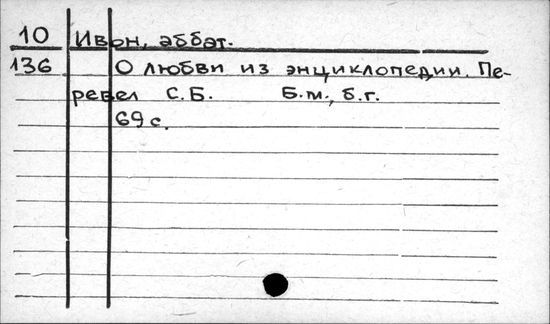 10 Ивон, аббат.
136 О любви из энциклопедии. Пе-
ревел С.Б. Б.м., б.г.
69 с.